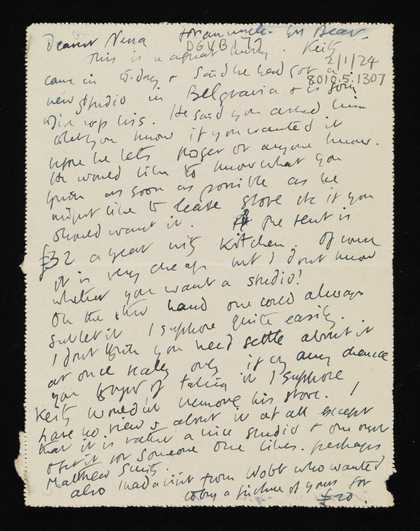 Dearest Nina
DGVB 1.12
This is a great hurry. Keith
2/1/24
came in Friday & said he had got a
8010.5.1307
new studio in Belgravia & is
giving up his. He said you asked him
let you know if you wanted it
before he lets Roger or anyone know.
He would like to know what you
think as soon as possible as he
might like to leave stove etc if you
should want it. The rent is
£32 a year with kitchen. Of course
it is very cheap but I dont know
whether you want a studio!
On the other hand one could always
sublet it I suppose quite easily.
I dont think you need settle about it
at once really only if by any chance
you thought of taking it I suppose
Keith wouldn't remove his stove. I
have no views about it at all except
that it is rather a nice studio & one must
offer it to someone one likes. perhaps
Matthew
also I had a visit from Wobb who wanted
to buy a picture of yours for
£20